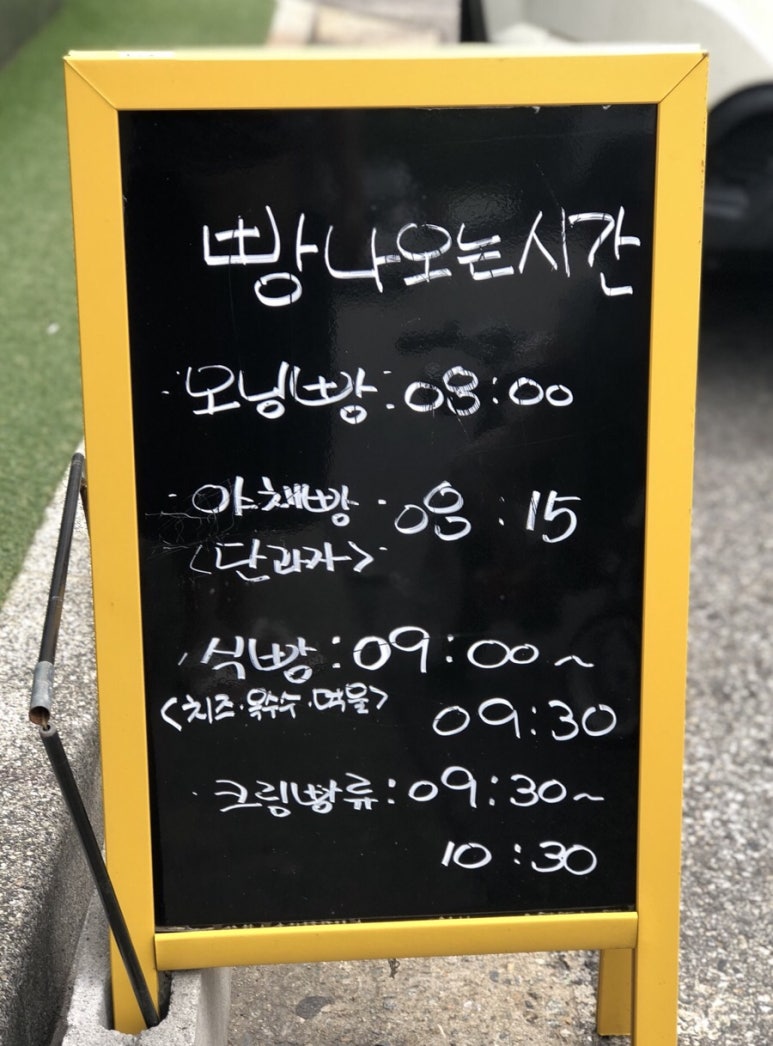 빵나오는시간
· 모닝빵 : 08:00
· 야채빵 · 08 : 15
<단과자>
· 식빵 : 09:00 ~
<치즈·옥수수·먹물>
09:30
· 크림빵류 : 09:30~
10:30